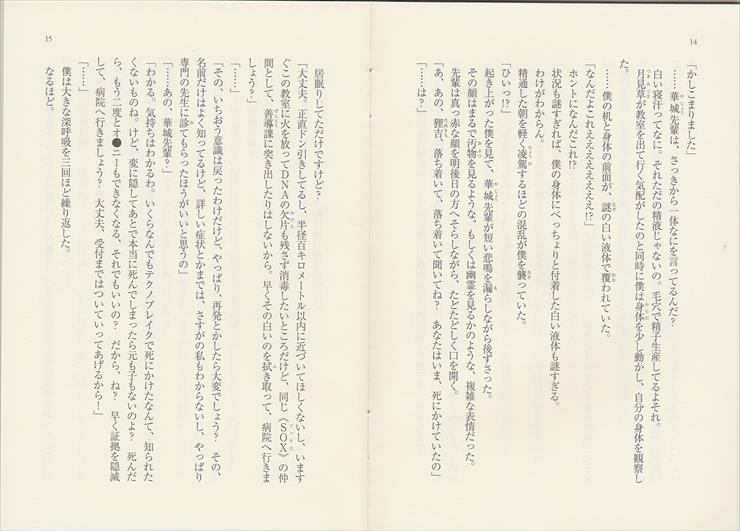 14
「かしこまりました」
……華城先輩は、さっきから一体なにを言ってるんだ？
白い寝汗ってなに。それただの精液じゃないの。毛穴で精子生産してるよそれ。
月見草が教室を出て行く気配がしたのと同時に僕は身体を少し動かし、自分の身体を観察し
た。
……僕の机と身体の前面が、謎の白い液体で覆われていた。
「なんだよこれええええええええ!?」
ホントになんだこれ!?
状況も謎すぎれば、僕の身体にべっちょりと付着した白い液体も謎すぎる。
わけがわからん。
精通した朝を軽く凌駕するほどの混乱が僕を襲っていた。
「ひいっ!?」
起き上がった僕を見て、華城先輩が短い悲鳴を漏らしながら後ずさった。
その顔はまるで汚物を見るような、もしくは幽霊を見るかのような、複雑な表情だった。
先輩は真っ赤な顔を明後日の方へそらしながら、たどたどしく口を開く。
「あ、あの、狸吉、落ち着いて、落ち着いて聞いてね？　あなたはいま、死にかけていたの」
「……は？」
15
居眠りしてただけですけど？
「大丈夫。正直ドン引きしてるし、半径百キロメートル以内に近づいてほしくないし、います
ぐこの教室に火を放ってDNAの欠片も残さず消毒したいところだけど、同じ《SOX》の仲
間として、善導課に突き出したりはしないから。早くその白いのを拭き取って、病院へ行きま
しょう？」
「……」
「その、いちおう意識は戻ったわけだけど、やっぱり、再発とかしたら大変でしょう？　その、
名前だけはよく知ってるけど、詳しい症状とかまでは、さすがの私もわからないし、やっぱり
専門の先生に診てもらったほうがいいと思うの」
「……あの、華城先輩？」
「わかる。気持ちはわかるわ。いくらなんでもテクノブレイクで死にかけたなんて、知られた
くないものね。けど、変に隠してあとで本当に死んでしまったら元も子もないのよ？　死んだ
ら、もう二度とオ●ニーもできなくなる、それでもいいの？　だから、ね？　早く証拠を隠滅
して、病院へ行きましょう？　大丈夫、受付まではついていってあげるから！」
「……」
僕は大きな深呼吸を三回ほど繰り返した。
なるほど。